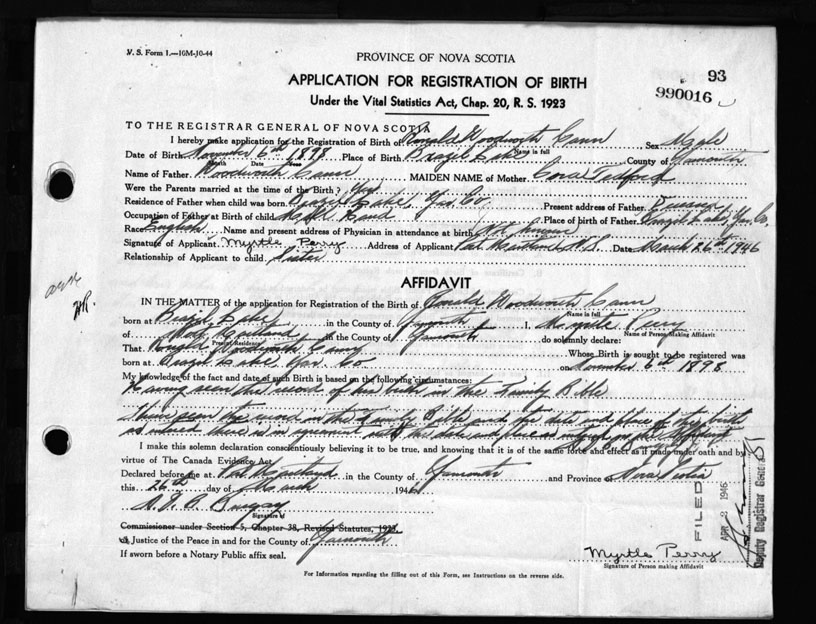 V. S. Form 1.—10M-10-44
PROVINCE OF NOVA SCOTIA
93
APPLICATION FOR REGISTRATION OF BIRTH
990016
Under the Vital Statistics Act, Chap. 20, R. S. 1923
TO THE REGISTRAR GENERAL OF NOVA SCOTIA
I hereby make application for the Registration of Birth of Ronald Woodworth Cann Sex Male
Name in full
Date of Birth November 6th 1898 Place of Birth Brazil Lake County of Yarmouth
Month Date
Name of Father Woodworth Cann MAIDEN NAME of Mother Cora Tedford
Were the Parents married at the time of the Birth? Yes
Residence of Father when child was born Brazil Lake, Yar. Co. Present address of Father Deceased
Occupation of Father at Birth of child Mill Hand Place of birth of Father Brazil Lake, Yar. Co.
Race English Name and present address of Physician in attendance at birth
Signature of Applicant Myrtle Perry Address of Applicant Port Maitland, N.S. Date March 26th 1946
Relationship of Applicant to child Sister
AFFIDAVIT
IN THE MATTER of the application for Registration of the Birth of Ronald Woodworth Cann
Name in full
born at Brazil Lake in the County of Yarmouth I, Myrtle Perry
Name of Person Making Affidavit
of Port Maitland in the County of Yarmouth do solemnly declare:
Present Residence
That Ronald Woodworth Cann Whose Birth is sought to be registered was
born at Brazil Lake, Yar. Co on November 6th 1898
My knowledge of the fact and date of such Birth is based on the following circumstances:
Having seen the record of his birth in the Family Bible
I have seen the record in the Family Bible and the date and place of birth
as entered there is in agreement with the date and place as
I make this solemn declaration conscientiously believing it to be true, and knowing that it is of the same force and effect as if made under oath and by
virtue of The Canada Evidence Act.
Declared before me at Port Maitland in the County of Yarmouth and Province of Nova Scotia
this 26th day of March 1946
Signature of
Commissioner under Section 5, Chapter 38, Revised Statutes, 1923.
a Justice of the Peace in and for the County of Yarmouth
If sworn before a Notary Public affix seal.
Myrtle Perry
Signature of Person making Affidavit
For Information regarding the filling out of this Form, see Instructions on the reverse side.
FILED
APR 2 1946
Deputy Registrar General